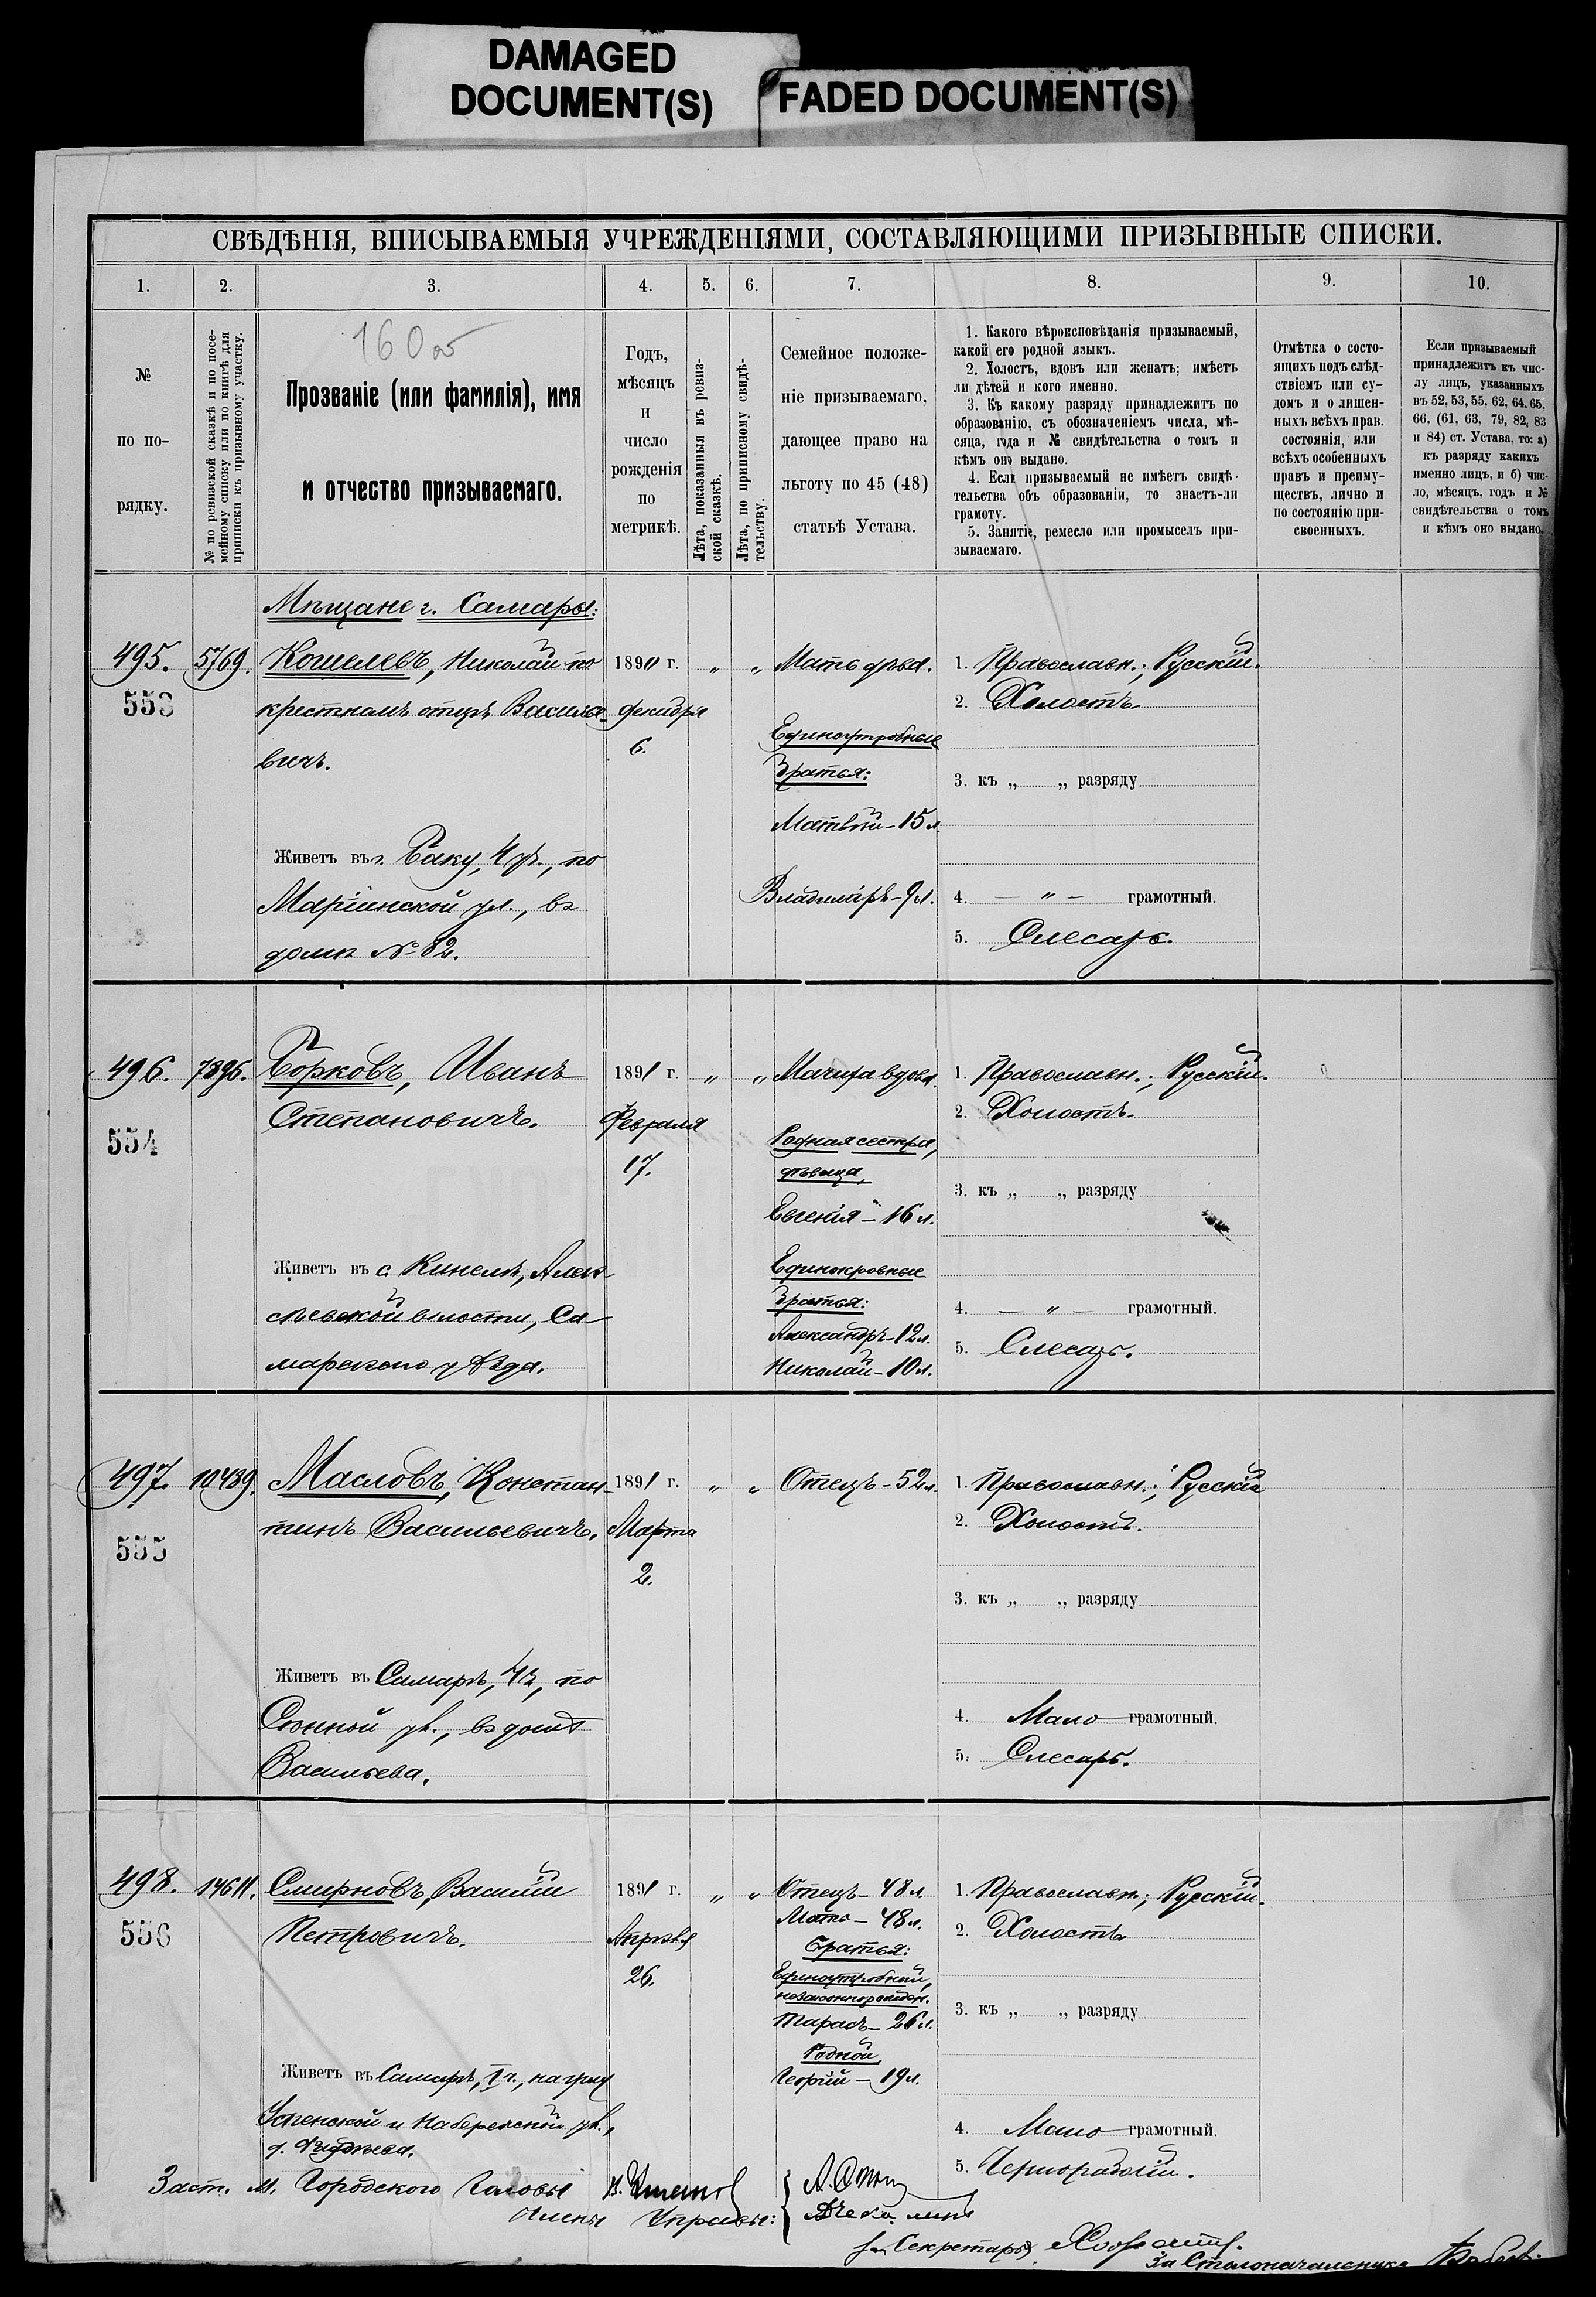 DAMAGED
DOCUMENT(S)
FADED DOCUMENT(S)
СВѢДѢНІЯ, ВПИСЫВАЕМЫЯ УЧРЕЖДЕНІЯМИ, СОСТАВЛЯЮЩИМИ ПРИЗЫВНЫЕ СПИСКИ.
1. 2. 3. 4. 5. 6. 7. 8. 9. 10.
№
по по-
рядку.
№ по ревизской сказкѣ и по посе-
мейному списку или по книгѣ для
приписки къ призывному участку.
160
Прозваніе (или фамилія), имя
и отчество призываемаго.
Годъ,
мѣсяцъ
и
число
рожденія
по
метрикѣ.
Лѣта, показанныя въ ревиз-
ской сказкѣ.
Лѣта, по приписному свидѣ-
тельству.
Семейное положе-
ніе призываемаго,
дающее право на
льготу по 45 (48)
статьѣ Устава.
1. Какого вѣроисповѣданія призываемый,
какой его родной языкъ.
2. Холостъ, вдовъ или женатъ; имѣетъ
ли дѣтей и кого именно.
3. Къ какому разряду принадлежитъ по
образованію, съ обозначеніемъ числа, мѣ-
сяца, года и № свидѣтельства о томъ и
кѣмъ оно выдано.
4. Если призываемый не имѣетъ свидѣ-
тельства объ образованіи, то знаетъ-ли
грамоту.
5. Занятіе, ремесло или промыселъ при-
зываемаго.
Отмѣтка о состо-
ящихъ подъ слѣд-
ствіемъ или су-
домъ и о лишен-
ныхъ всѣхъ прав.
состоянія, или
всѣхъ особенныхъ
правъ и преиму-
ществъ, лично и
по состоянію при-
своенныхъ.
Если призываемый
принадлежитъ къ чис-
лу лицъ, указанныхъ
въ 52, 53, 55, 62, 64, 65,
66, (61, 63, 79, 82, 83
и 84) ст. Устава, то: а)
къ разряду какихъ
именно лицъ, и б) чис-
ло, мѣсяцъ, годъ и №
свидѣтельства о томъ
и кѣмъ оно выдано.
Мѣщане г. Самары:
495. 5769. Кошелевъ, Николай по
553
крестномъ отцѣ Василье-
вичъ.
Живетъ въ г. Баку, 4 ч., по
Маріинской ул., въ
домѣ № 82.
1890 г. " "
декабря
6.
Мать
Единоутробные
братья:
Матвѣй – 15 л.
Владиміръ – 9 л.
1. Православн.; Русскій.
2. Холостъ.
3. къ „ „ разряду
4. — " — грамотный.
5. Слесарь.
496. 7396. Борковъ, Иванъ
554
Степановичъ.
Живетъ въ с. Кинелѣ, Алек-
сѣевской волости, Са-
марскаго уѣзда.
1891 г. " "
Февраля
17.
Мачиха вдова.
Родная сестра,
дѣвица,
Евгенія – 16 л.
Единокровные
братья:
Александръ – 12 л.
Николай – 10 л.
1. Православн.; Русскій.
2. Холостъ.
3. къ „ „ разряду
4. — " — грамотный.
5. Слесарь.
497. 10439. Масловъ, Констан-
555
тинъ Васильевичъ.
Живетъ въ Самарѣ, 4 ч., по
Сѣнной ул., въ домѣ
Васильева.
1891 г. " "
Марта
2.
Отецъ – 52 л.
1. Православн.; Русскій
2. Холостъ.
3. къ „ „ разряду
4. Мало грамотный.
5. Слесарь.
498. 14611. Смирновъ, Василій
556
Петровичъ.
Живетъ въ Самарѣ, 1 ч., на углу
Успенской и Набережной ул.,
д.
1891 г. " "
Апрѣля
26.
Отецъ – 48 л.
Мать – 48 л.
Братья:
Единоутробный,
незаконнорожден.
Тарасъ – 26 л.
Родной,
Георгій – 19 л.
1. Православн.; Русскій.
2. Холостъ
3. къ „ „ разряду
4. Мало грамотный.
5. Чернорабочій.
Заст. м. Городского Головы
Члены Управы:
Секретаря
За Столоначальника